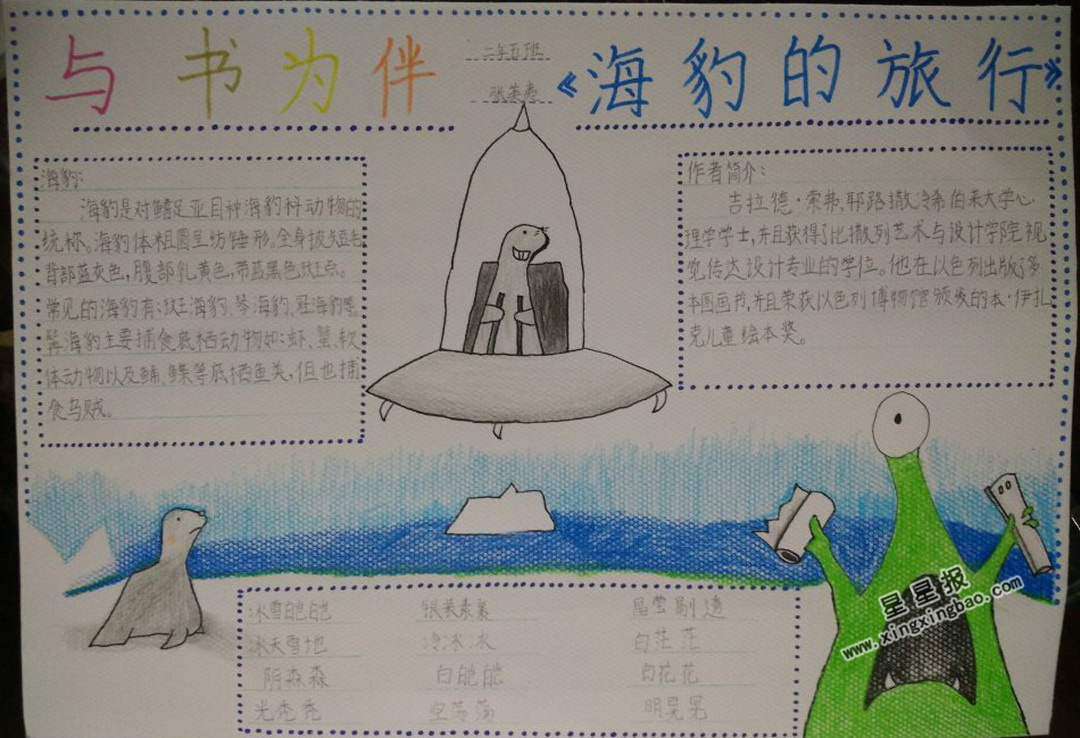 与书为伴
二年五班
《海豹的旅行》
海豹:
海豹是对鳍足亚目种海豹科动物的
统称。海豹体粗圆呈纺锤形。全身披短毛
背部蓝灰色,腹部乳黄色,带蓝黑色斑点。
常见的海豹有:斑海豹、琴海豹、冠海豹等
海豹主要捕食底栖动物如:虾、蟹、软
体动物以及鲽等底栖鱼类,但也捕
食乌贼。
作者简介:
吉拉德·索弗,耶路撒冷希伯来大学心
理学学士,并且获得了比撒列艺术与设计学院视
觉传达设计专业的学位。他在以色列出版了多
本图画书,并且荣获以色列博物馆颁发的本·伊扎
克儿童绘本奖。
冰雪皑皑 银装素裹 晶莹剔透
冰天雪地 冷冰冰 白茫茫
阴森森 白皑皑 白花花
光秃秃 空荡荡 明晃晃
星星报
www.xingxingbao.com